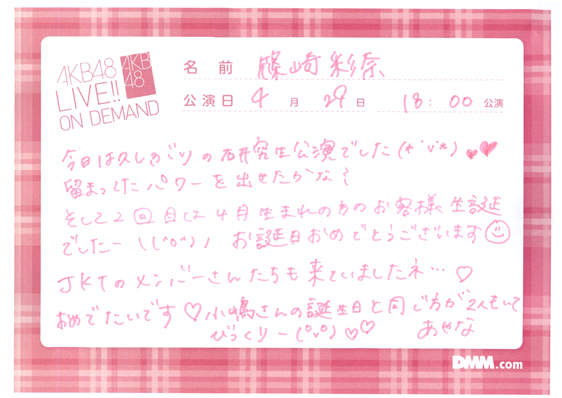 AKB48
LIVE!!
ON DEMAND
AKB
48
名前 篠崎彩奈
公演日 4月29日 18:00公演
今日は久しぶりの研究生公演でした(*´∨`*)♥♥
留まってたパワーを出せたかな?
そして2回目は4月生まれの方のお客様生誕
でしたー\(^o^)/ お誕生日おめでとうございます☺
JKTのメンバーさんたちも来ていましたネ…♡
おめでたいです♡小嶋さんの誕生日と同じ方が2人もいて
びっくりー(°∨°)♡♡ あやな
DMM.com